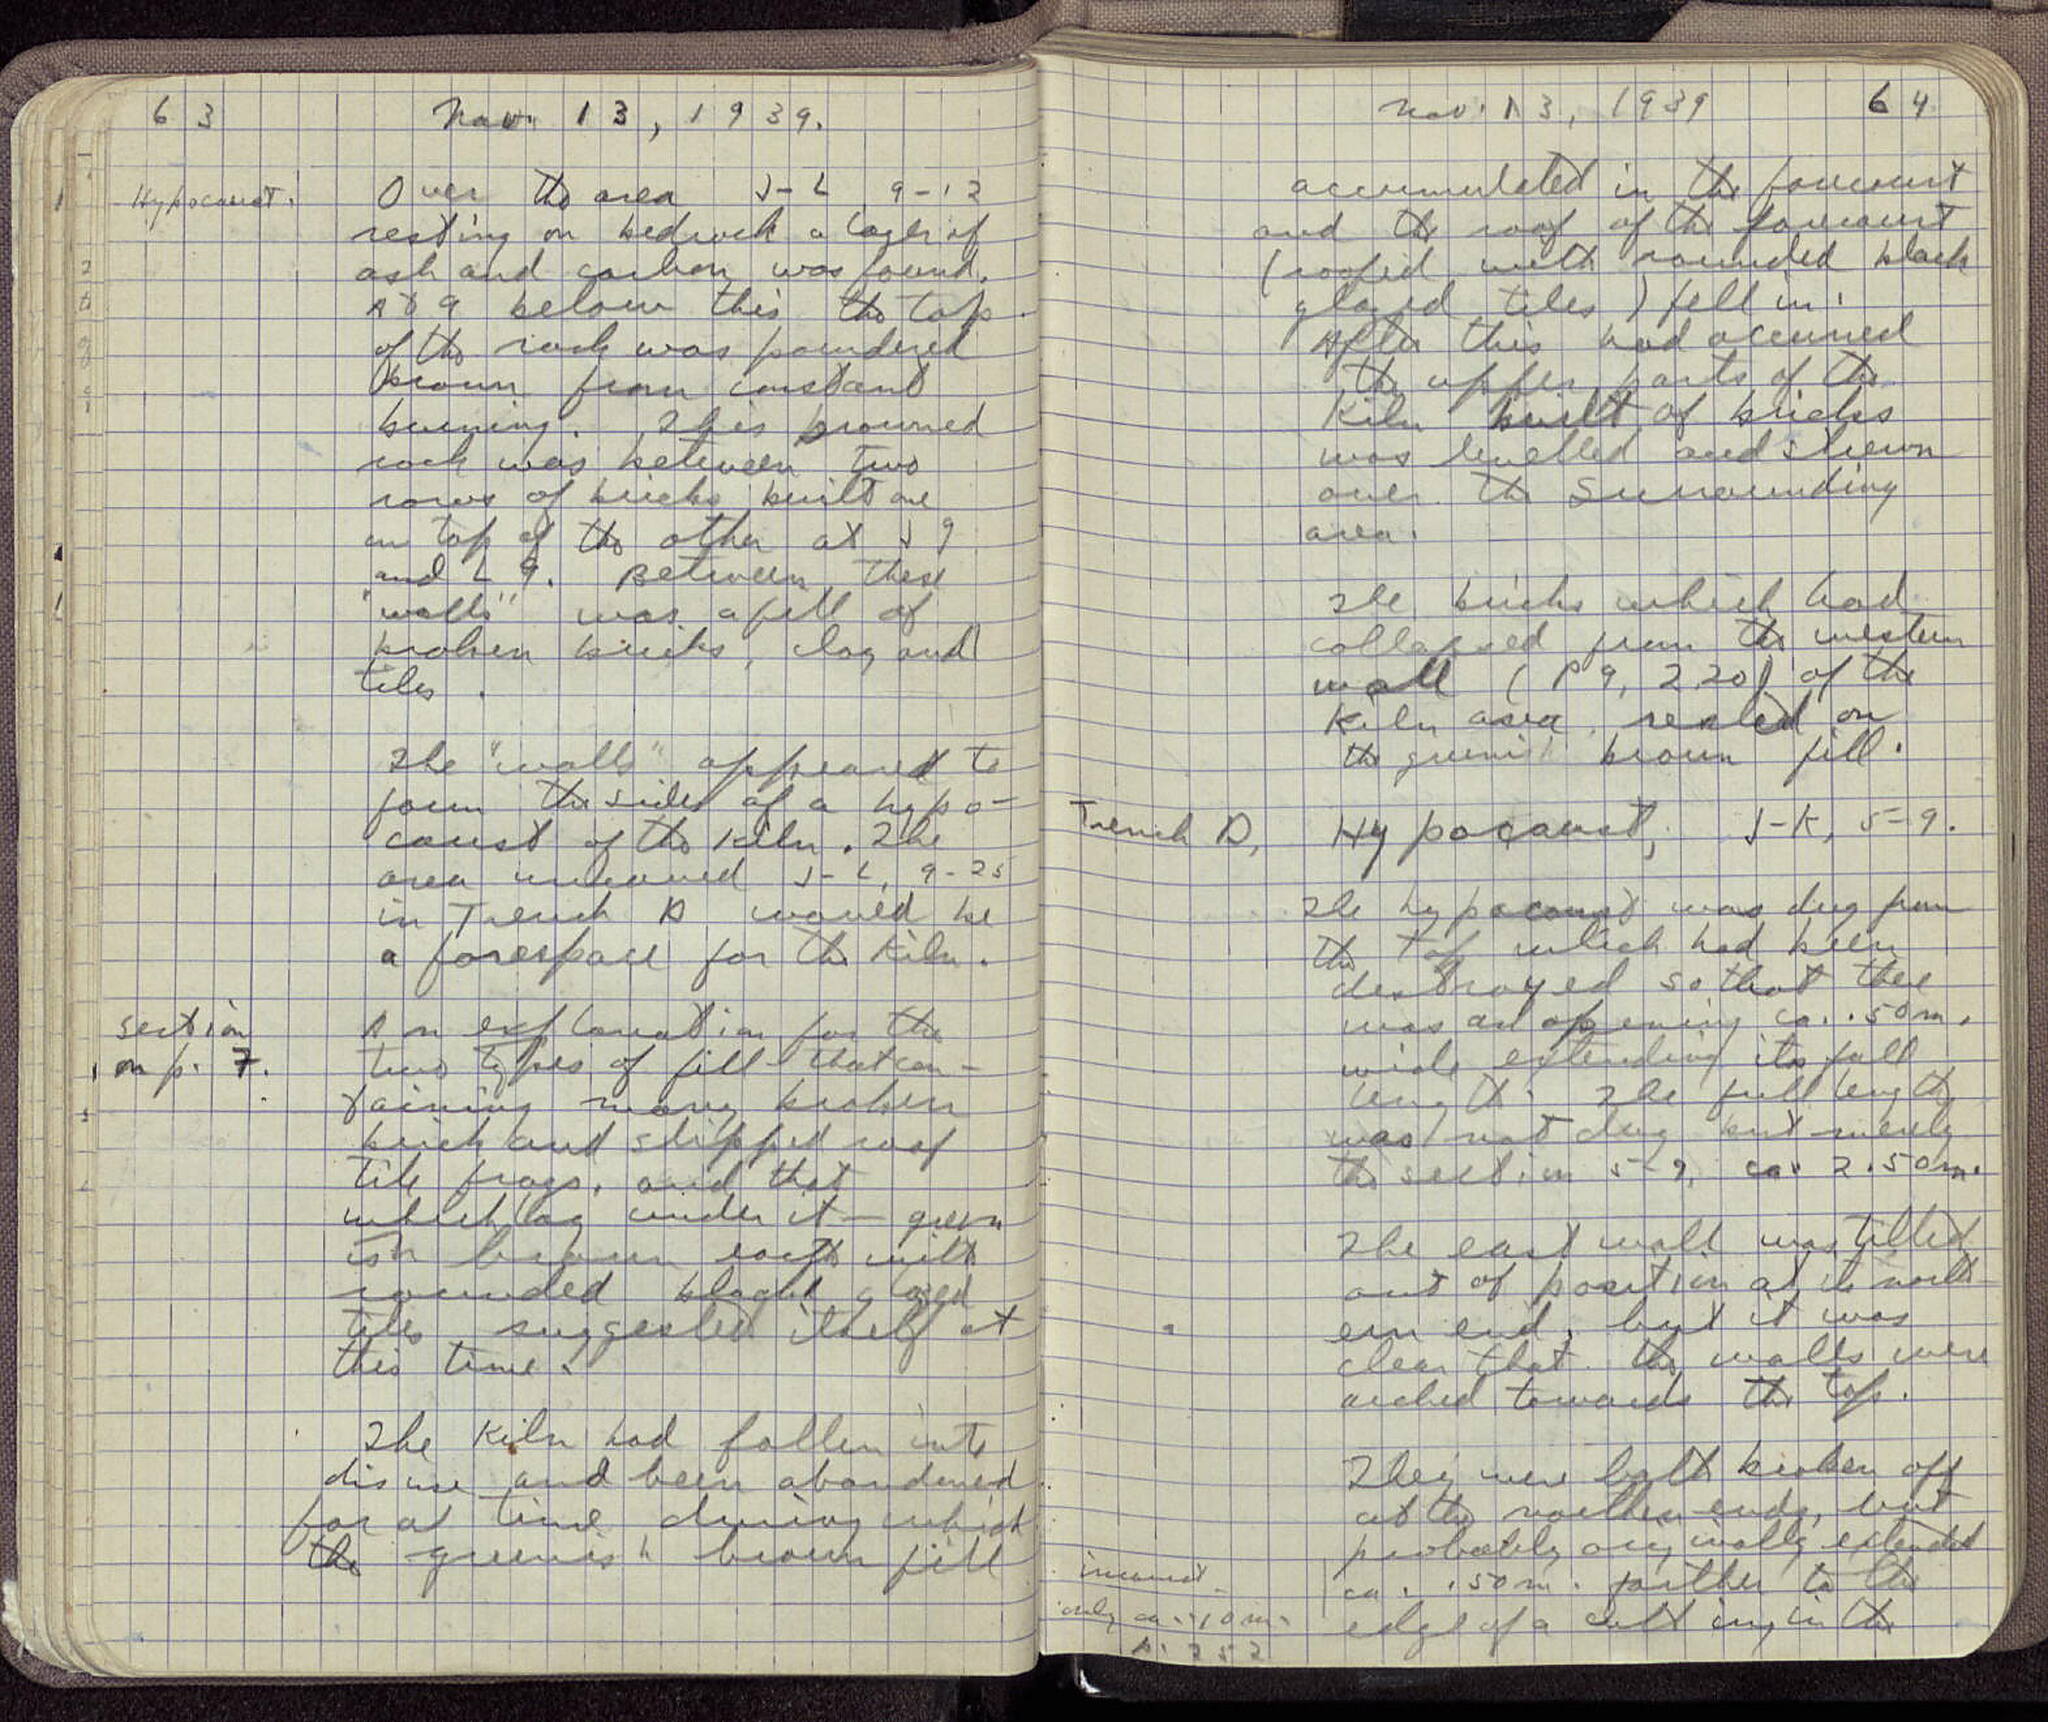 63
Nov. 13, 1939.
Hypocaust.
Over the area J-L 9-12
resting on bedrock a layer of
ash and carbon was found.
At 9 below this the top
of the rock was powdered
brown from constant
burning. This browned
rock was between two
rows of bricks built one
on top of the other at J 9
and L 9. Between these
"walls" was a fill of
broken bricks, clay and
tiles.
The "walls" appeared to
form the sides of a hypo-
caust of the kiln. The
area uncovered J-L, 9-25
in Trench D would be
a forespace for the kiln.
section
on p. 7.
An explanation for the
two types of fill - that con-
taining many broken
brick and slipped roof
tile frags. and that
which lay under it - green
ish brown earth with
rounded black glazed
tiles suggested itself at
this time.
The kiln had fallen into
disuse and been abandoned
for a time during which
the greenish brown fill
Nov. 13, 1939
64
accumulated in the forecourt
and the roof of the forecourt
(roofed with rounded black
glazed tiles) fell in.
After this had occurred
the upper parts of the
kiln built of bricks
was levelled and strewn
over the surrounding
area.
The bricks which had
collapsed from the western
wall (P 9, 2.20) of the
kiln area rested on
the greenish brown fill.
Trench D, Hypocaust, J-K, 5-9.
The hypocaust was dug from
the top which had been
destroyed so that there
was an opening ca. .50m.
wide extending its full
length. The full length
was not dug but merely
the section 5-9, ca. 2.50m.
The east wall was tilted
out of position at its north
ern end, but it was
clear that the walls were
arched towards the top.
They were both broken off
at the northern ends, but
probably originally extended
ca. .50m. farther to the
edge of a cutting in the
incorrect -
only ca. .10m.
p. 252